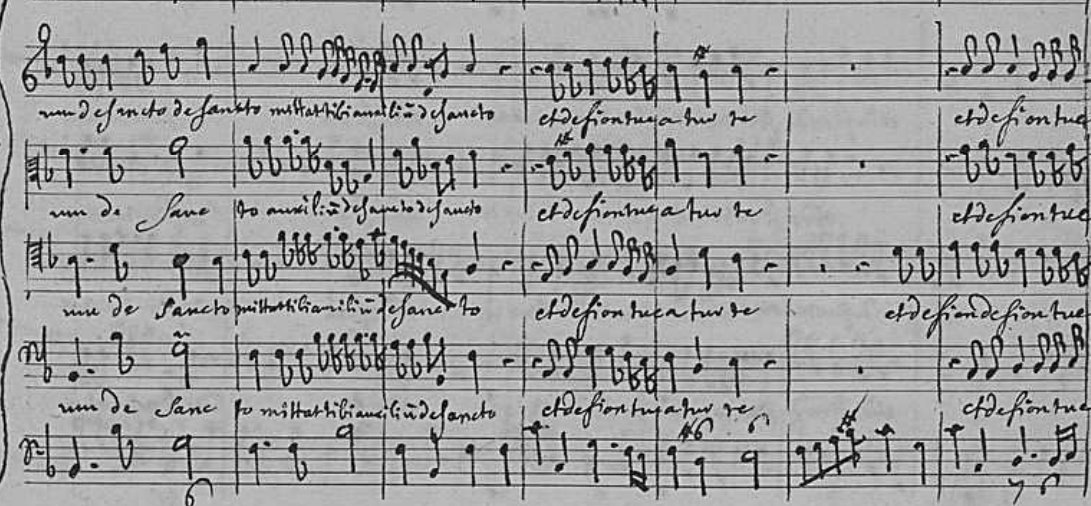 um de sancto de sancto mittat tibi auxiliũ de sancto et de sion tueatur te et de sion tuea
um de Sanc to auxiliũ de sancto de sancto et de sion tueatur te et de sion tuea
um de Sancto mittat tibi auxiliũ de sancto et de sion tueatur te et de sion de sion tuea
um de Sanc to mittat tibi auxiliũ de sancto et de sion tueatur te et de sion tuea
6 #6 6 7 6